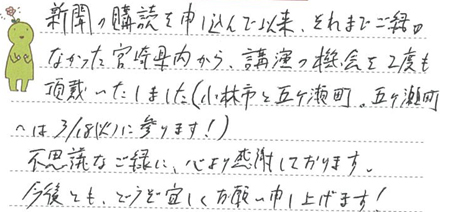 新聞の購読を申し込んで以来、それまでご縁の
なかった宮崎県内から、講演の機会を2度も
頂戴いたしました(小林市と五ヶ瀬町。五ヶ瀬町
へは3/18(火)に参ります!)
不思議なご縁に、心より感謝しております。
今後とも、どうぞ宜しくお願い申し上げます!